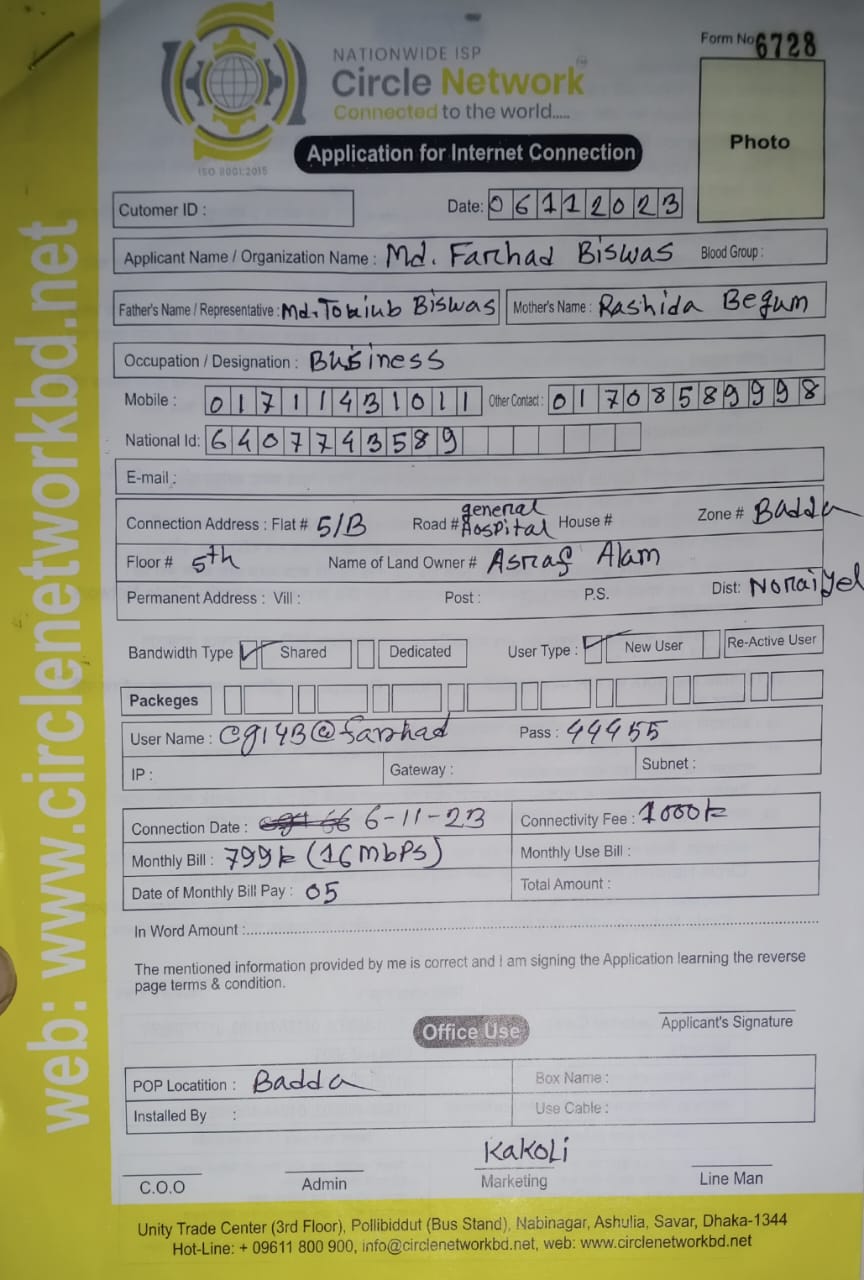 NATIONWIDE ISP
Circle Network
Connected to the world.....
ISO 9001:2015
Form No 6728
Photo
Application for Internet Connection
Cutomer ID :
Date: 06112023
Applicant Name / Organization Name : Md. Farhad Biswas Blood Group :
Father's Name / Representative : Md. Biswas Mother's Name : Rashida Begum
Occupation / Designation : Business
Mobile : 01711431011 Other Contact : 01708589998
National Id: 6407743589
E-mail :
Connection Address : Flat # 5/B Road # general Hospital House # Zone # Badda
Floor # 5th Name of Land Owner # Asraf Alam
Permanent Address : Vill : Post : P.S. Dist: Noraiyel
Bandwidth Type Shared Dedicated User Type : New User Re-Active User
Packeges
User Name : cg143@farhad Pass : 44455
IP : Gateway : Subnet :
Connection Date : 6-11-23 Connectivity Fee : 1000k
Monthly Bill : 799k (16mbps) Monthly Use Bill :
Date of Monthly Bill Pay : 05 Total Amount :
In Word Amount :
The mentioned information provided by me is correct and I am signing the Application learning the reverse
page terms & condition.
Applicant's Signature
Office Use
POP Locatition : Badda Box Name :
Installed By : Use Cable :
Kakoli
C.O.O Admin Marketing Line Man
Unity Trade Center (3rd Floor), Pollibiddut (Bus Stand), Nabinagar, Ashulia, Savar, Dhaka-1344
Hot-Line: + 09611 800 900, info@circlenetworkbd.net, web: www.circlenetworkbd.net
web: www.circlenetworkbd.net